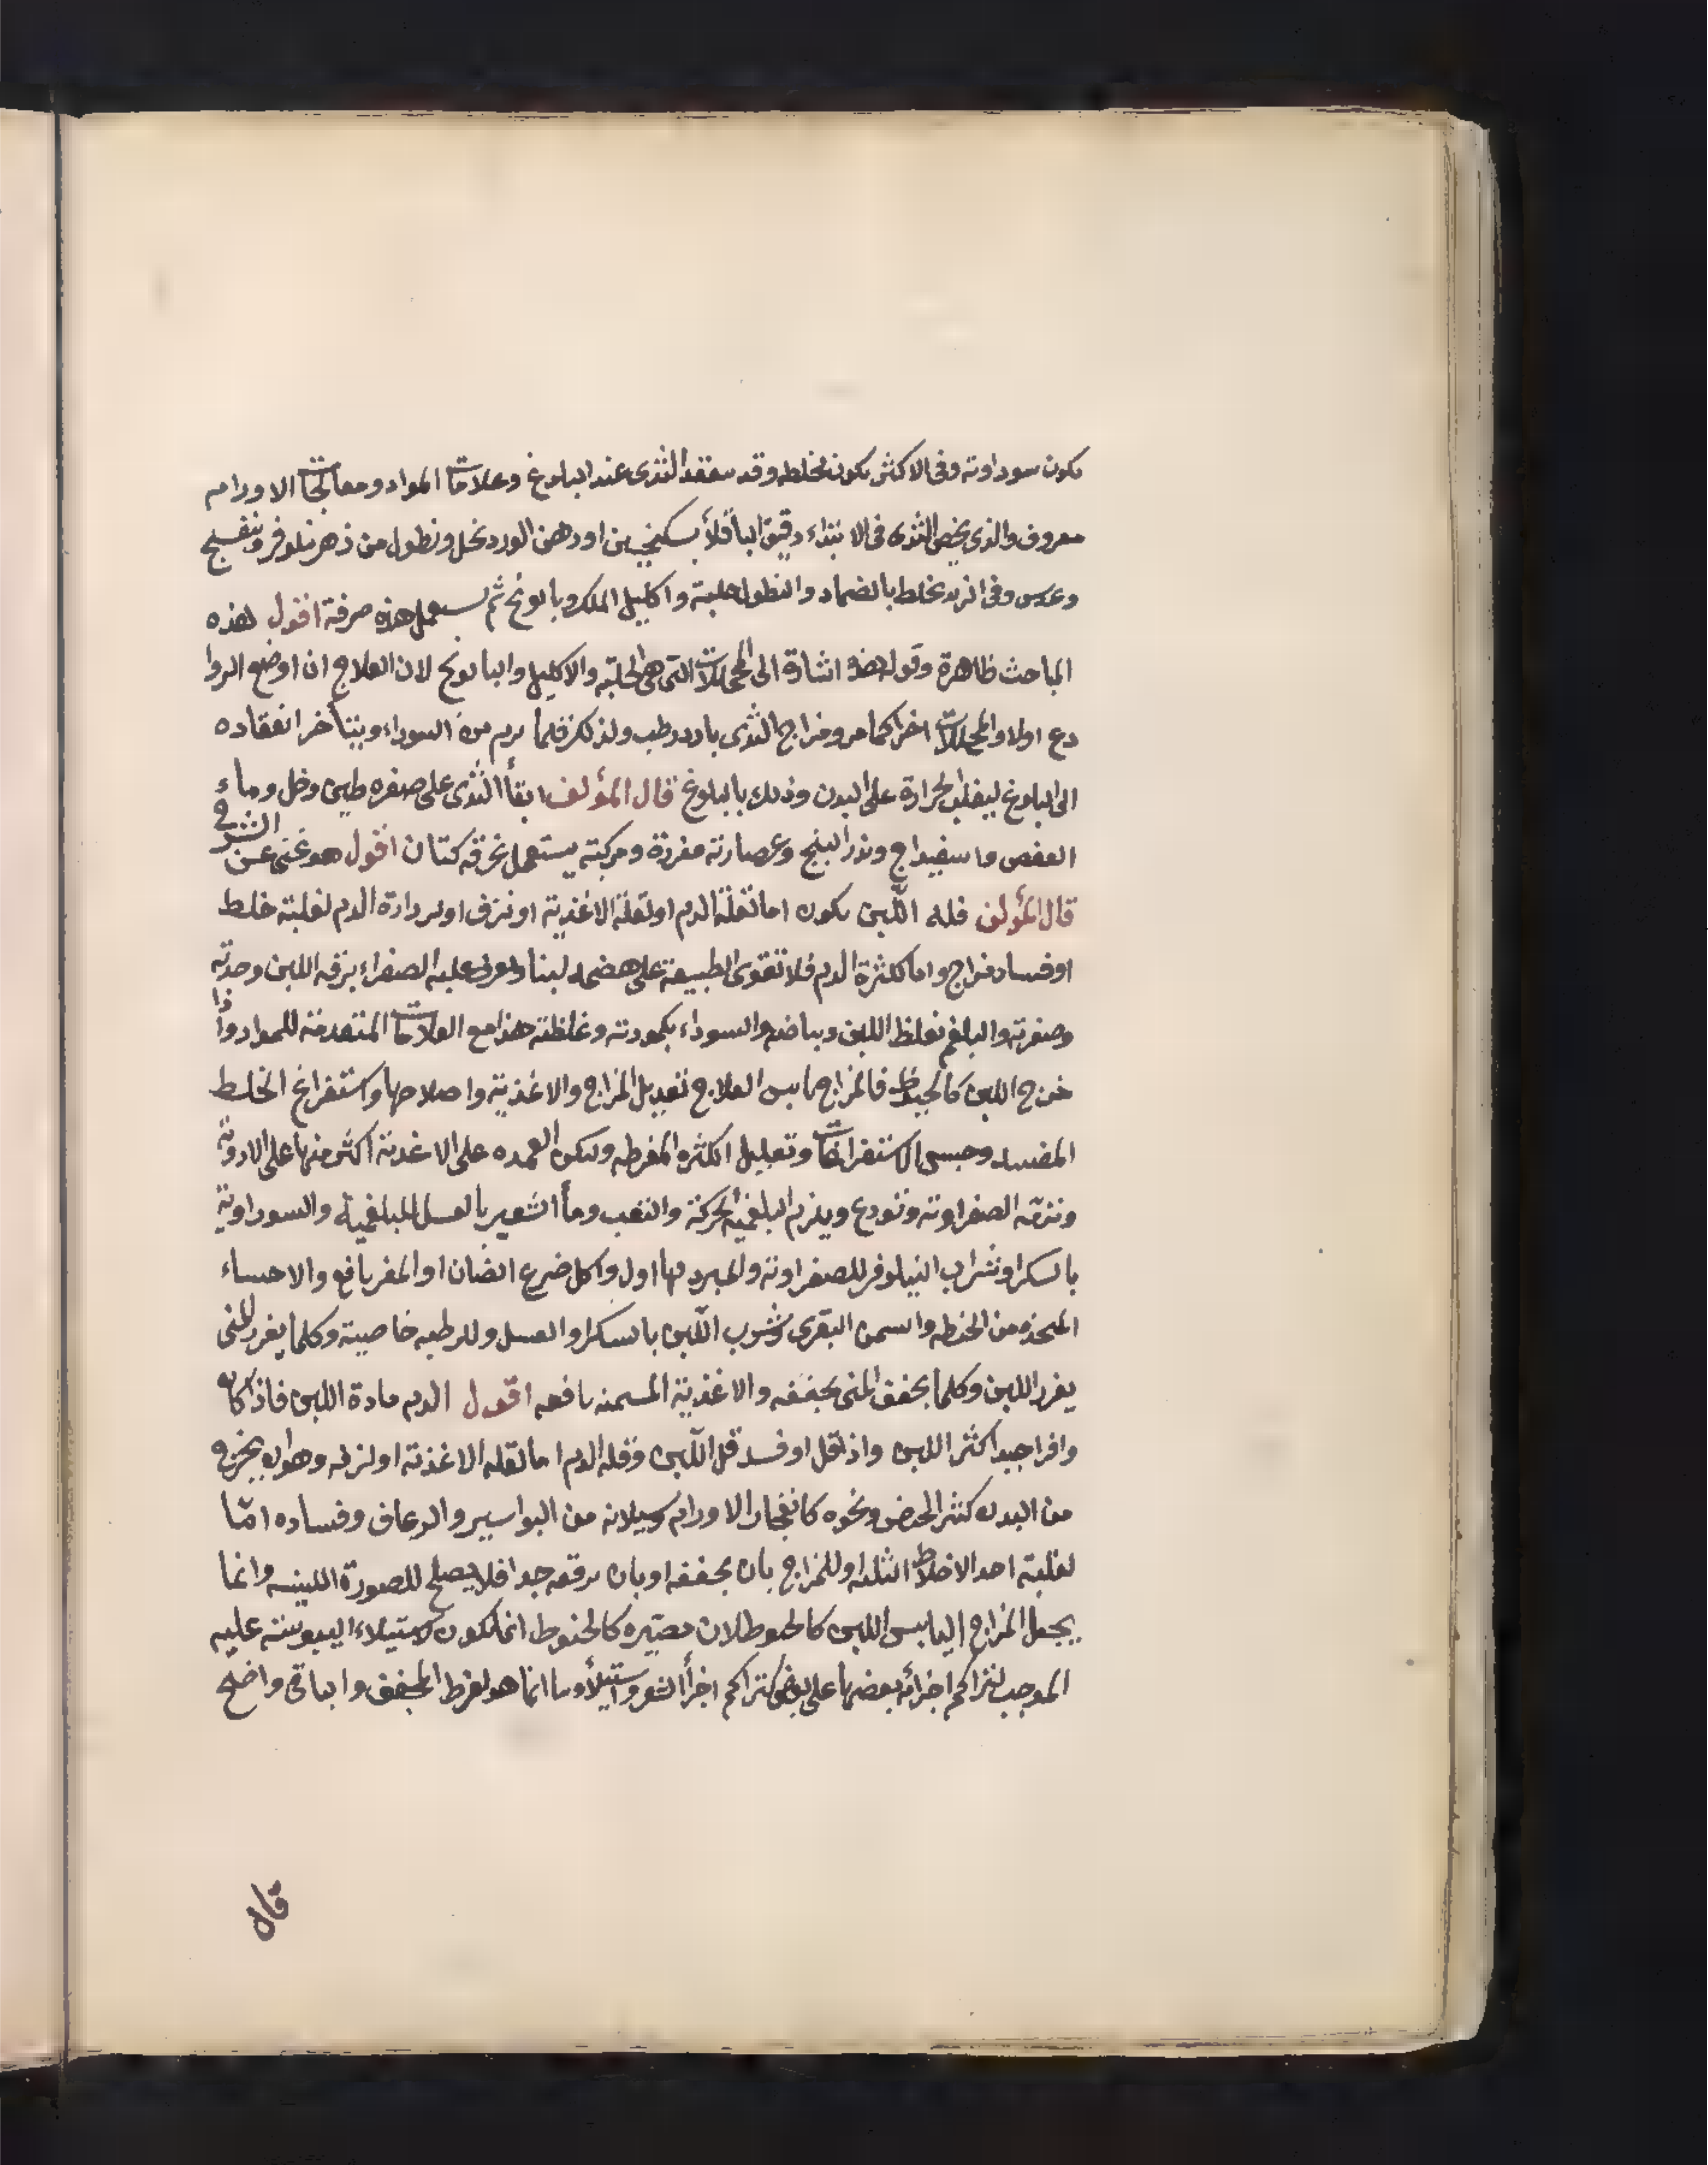 يكون سوداوية وفى الاكثر يكون مختلطه وقد ينعقد الثدى عند البلوغ وعلامات المواد ومعالجات الاورام
معروف والذى يخص الثدى فى الابتداء دقيق الباقلا بسكنجبين او دهن الورد بخل ونطول من زهر نيلوفر وبنفسج
وعدس وفى التزيد يخلط بالضماد والنطول حلبة واكليل الملك وبابونج ثم يستعمل هذه صرفة اقول هذه
المباحث ظاهرة وقوله هذه اشارة الى المحللات التى هى الحلبه والاكليل والبابونج لان العلاج ان اوضع الروا
دع اولا والمحللات اخرا كما مر ومزاج الثدى بارد رطب ولذلك قلما يرم من السوداء ويتأخر انعقاده
الى البلوغ ليغلب الحرارة على البدن وذلك بالبلوغ قال المؤلف ابقأ الثدى على صغره طين وخل وماء
العفص واسفيداج وبزر البنج وعصارته مفردة ومركبته يستعمل بخرقه كتان اقول هو غنى عن الشرح
قال المؤلف قله اللبن يكون اما لقلة الدم او لقلة الاغذية او نزف او لرداءة الدم لغلبة خلط
او فساد مزاج واما لكثرة الدم فلا تقوى الطبيعة على هضمه لبنا ويعرف غلبه الصفراء برقه اللبن وحدته
وصفرته والبلغم بغلظ اللبن وبياضه والسوداء بكمودته وغلظته هذا مع العلامات المتقدمة للمواد واذا
خرج اللبن كالخيط فالمزاج يابس العلاج تعديل المزاج والاغذية واصلاحها واستفراغ الخلط
المفسد وحبس الاستفراغات وتعليل الكثره المفرطه وليكن العمده على الاغذية اكثر منها على الادوية
وتنزه الصفراوية وتودع ويلزم البلغمية الحركة والتعب ومأ الشعير بالعسل للبلغمية والسوداوية
بالسكر او شراب النيلوفر للصفراوية والمبرد بها اولى واكل ضرع الضان او المعز نافع والاحساء
المتخذه من الحنطه والسمن البقرى وشرب اللبن بالسكر او العسل وللرطبه خاصية وكلما يغزر المنى
يغزر اللبن وكلما يجفف المنى يجففه والاغذية المسمنه نافعه اقول الدم مادة اللبن فاذا كان
وافرا جيدا كثر اللبن واذا قل او فسد قل اللبن وقله الدم اما لقله الاغذية او لنزف وهو ان يخرج
من البدن كثير الحيض ونحوه كانفجار الاورام وسيلانه من البواسير والرعاف وفساده امّا
لغلبة احد الاخلاط الثلثه او للمزاج بان يجففه او بان يرققه جدا فلا يصلح للصورة اللبنيه وانما
يجعل المزاج اليابس اللبن كالخيوط لان مصيره كالخيوط انما يكون لاستيلاء اليبوسة عليه
الموجب لتراكم اجزائه بعضها على بعض كتراكم اجزأ الشعر واستيلاؤها انما هو لفرط المجفف والباقى واضح
قال